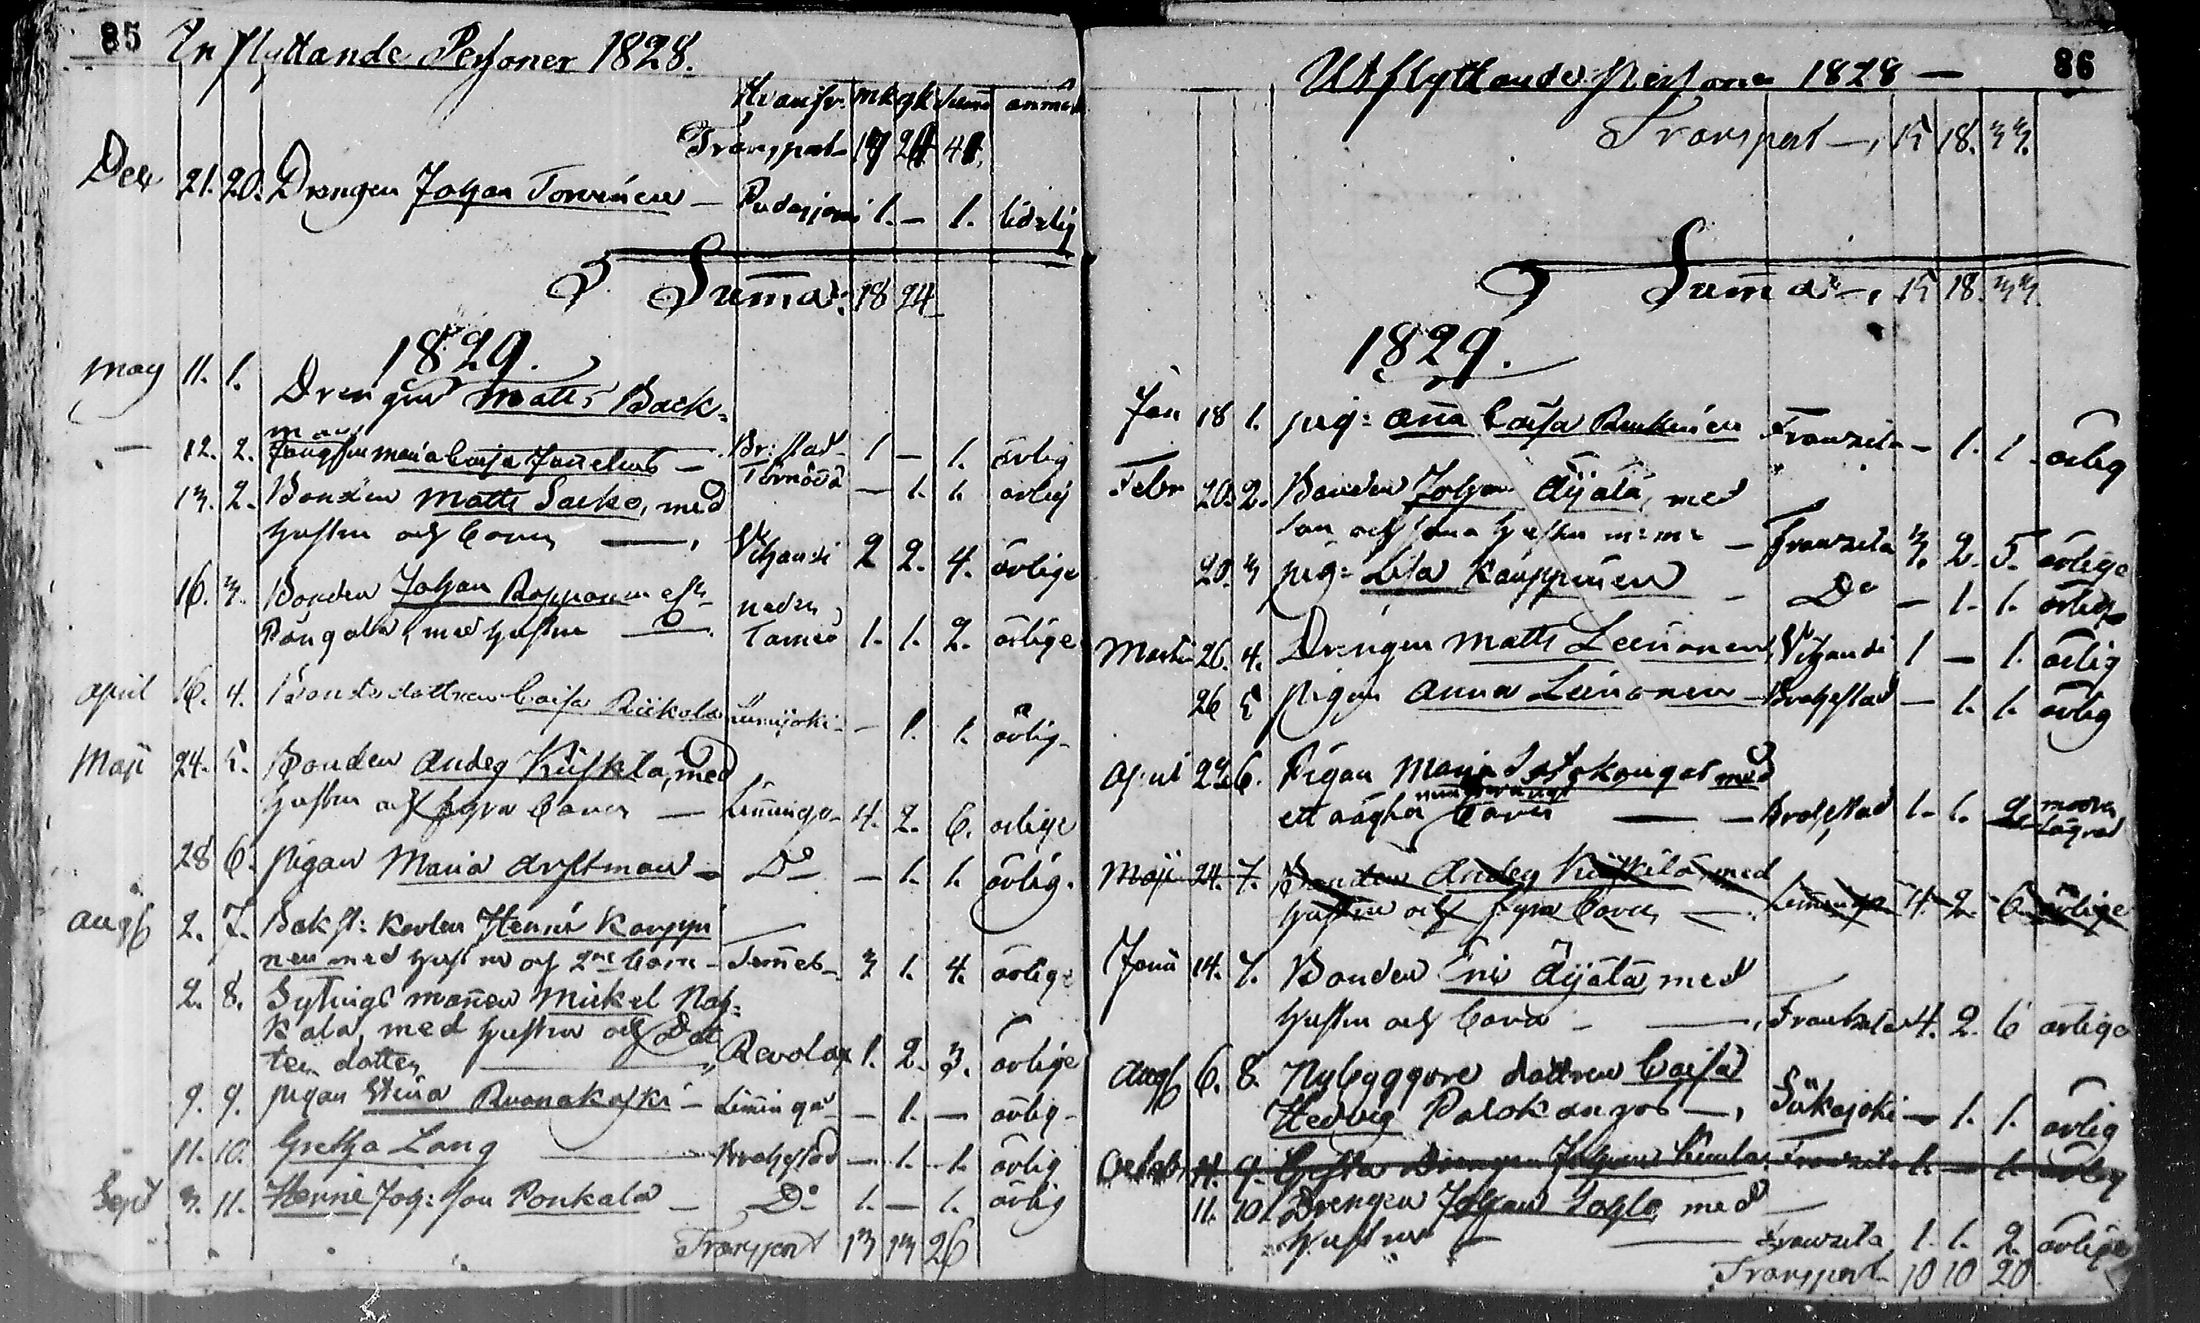 85 Inflyttande Personer 1828.
Hvarifr. mk qk Sum anmä
Transport 17 24 41.
Dec 21. 20. Drengen Johan Torvinen — Pudasjervi 1. — 1. lidelig
Summa: 18 24
1829.
may 11. 1. Drengen Matts Back-
man Br:stad 1 — 1. ärlig
— 12. 2. Jungfru Maria Caisa Janelius — Torneå — 1. 1. ärlig
13. 2. Bonden Matts Sarko, med
hustru och barn — Vihandi 2 2. 4. ärlige
16. 3. Bonden Johan Ropponen
Pångala, med hustru — neder Torneå 1. 1. 2. ärlige
april 16. 4. Bondedottren Caisa Riekola Lumijoki — 1. 1. ärlig
Maji 24. 5. Bonden Anders Kiiskilä, med
hustru och fyra barn — Limingo 4. 2. 6. ärlige
28 6. pigan Maria — Do — 1. 1. ärlig.
augs 2. 7. Henric Karppi
nen med hustru och 2ne barn — Temmes 3 1. 4. ärlige
2. 8. Sytnings mannen Mickel
kala, med hustru och Dot
ter dotter — Revolax 1. 2. 3. ärlige
9. 9. pigan Stina Ruonakoski — Liminga — 1. — ärlig
11. 10. Gretha Lang — Brahestad — 1. 1. ärlig
Sept 3. 11. Henric Joh: son Ponkala — Do 1. — 1. ärlig
Transport 13 13 26
Utflyttande Personer 1828 — 86
Transport —, 15 18. 33.
Summa —, 15 18. 33.
1829.
Jan 18 1. pig: Anna Caisa Franzila — 1. 1. ärlig
Febr 20. 2. Bonden Johan Äijälä, med
son och sona hustru m:m: — Franzila 3. 2. 5. ärlige
20. 3 pig: Lisa Kauppinen — Do — 1. 1. ärlig
Martii 26. 4. Drengen Matts Leinonen, Vihandi 1 — 1. ärlig
26 5 pigan Anna Leinonen — Brahestad — 1. 1. ärlig
April 6. Pigan Maria med
ett oägta barn — Brahestad 1. 1. 2.
Maji 24. 7. Bonden Anders Kiiskilä, med
hustru och fyra barn — Limingo 4. 2. 6 ärlige
Junii 14. 7. Bonden Eric Äijälä, med
hustru och barn — Frantzila 4. 2. 6 ärlige
Augs 6. 8. Nybyggare dottren Caisa
Hedvig Palokangas —, Siikajoki — 1. 1. ärlig
Octobr 4. 9. Gifta Drengen Johan Franzila 1. — 1. ärlig
11. 10. Drengen Johan med
hustru — Franzila 1. 1. 2. ärlige
Transport 10 10 20